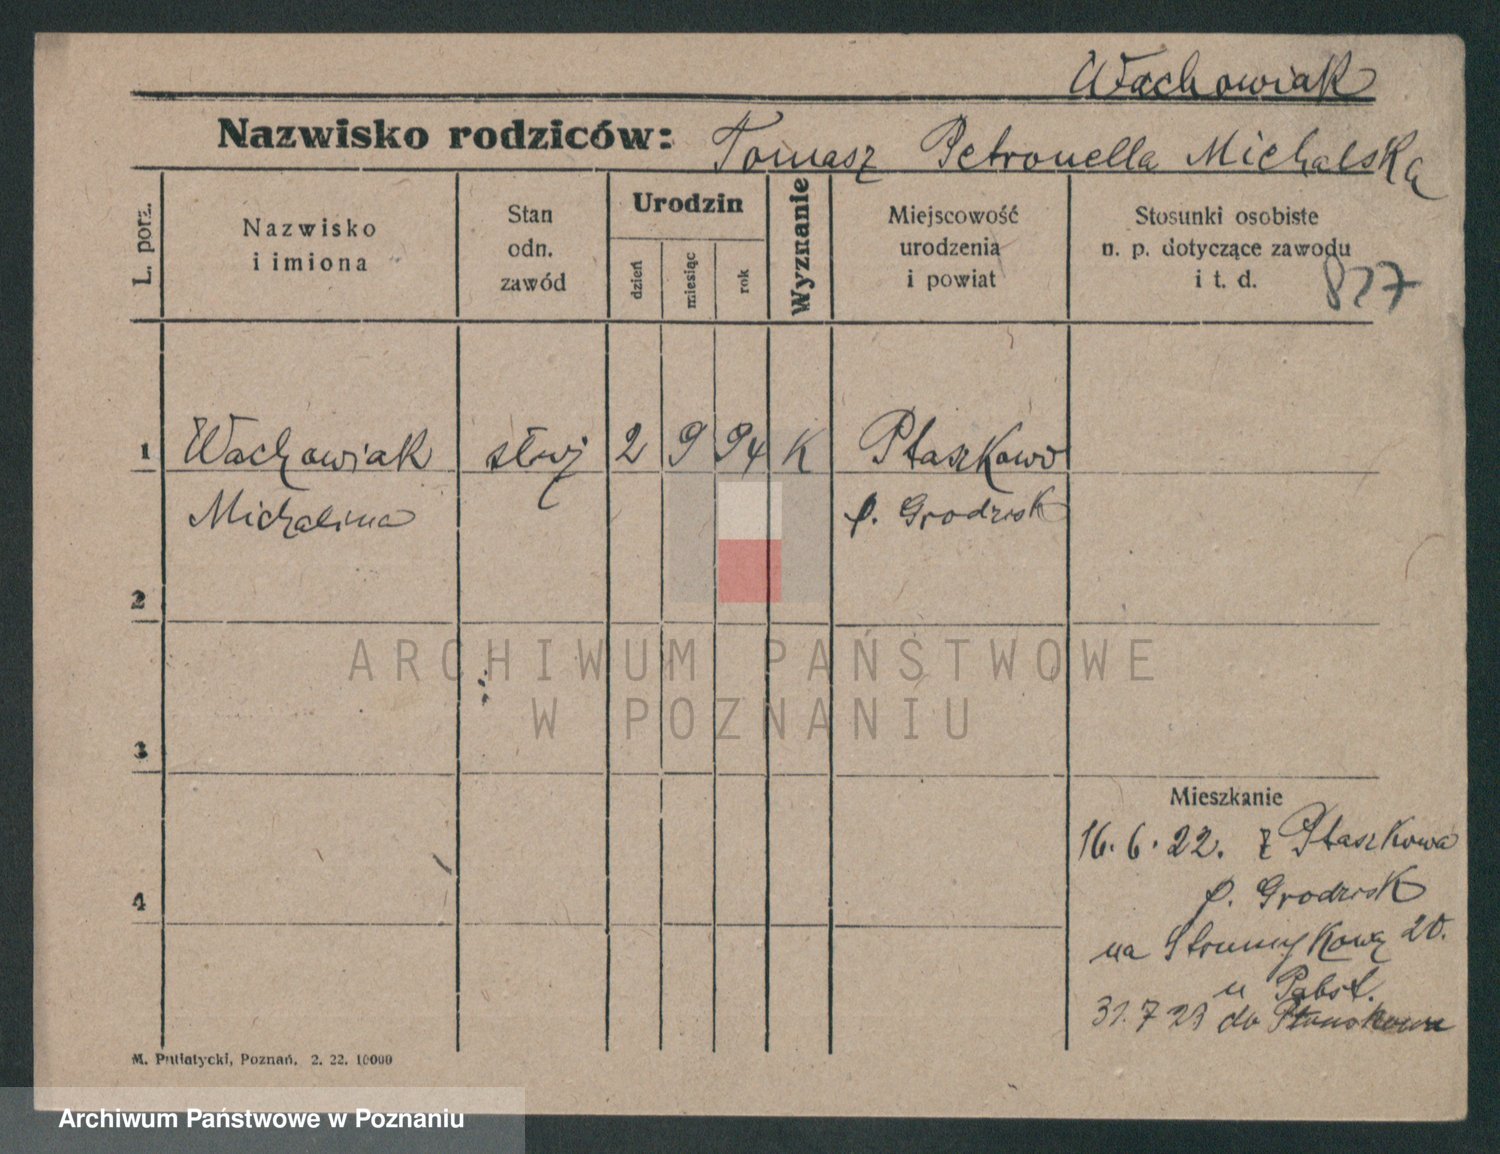 Wachowiak
Nazwisko rodziców: Tomasz Petronella Michalska
L. porz.
Nazwisko
i imiona
Stan
odn.
zawód
Urodzin
dzień
miesiąc
rok
Wyznanie
Miejscowość
urodzenia
i powiat
Stosunki osobiste
n. p. dotyczące zawodu
i t. d.
827
1 Wachowiak służ 2 9 94 K Ptaszkowo
Michalina p. Grodzisk
2
ARCHIWUM PAŃSTWOWE
W POZNANIU
3
Mieszkanie
16.6.22. z Ptaszkowa
p. Grodzisk
4
na Strumykową 20.
u Pabst.
31.7 23 do Ptaszkowa
M. Putiatycki, Poznań. 2. 22. 10000
Archiwum Państwowe w Poznaniu